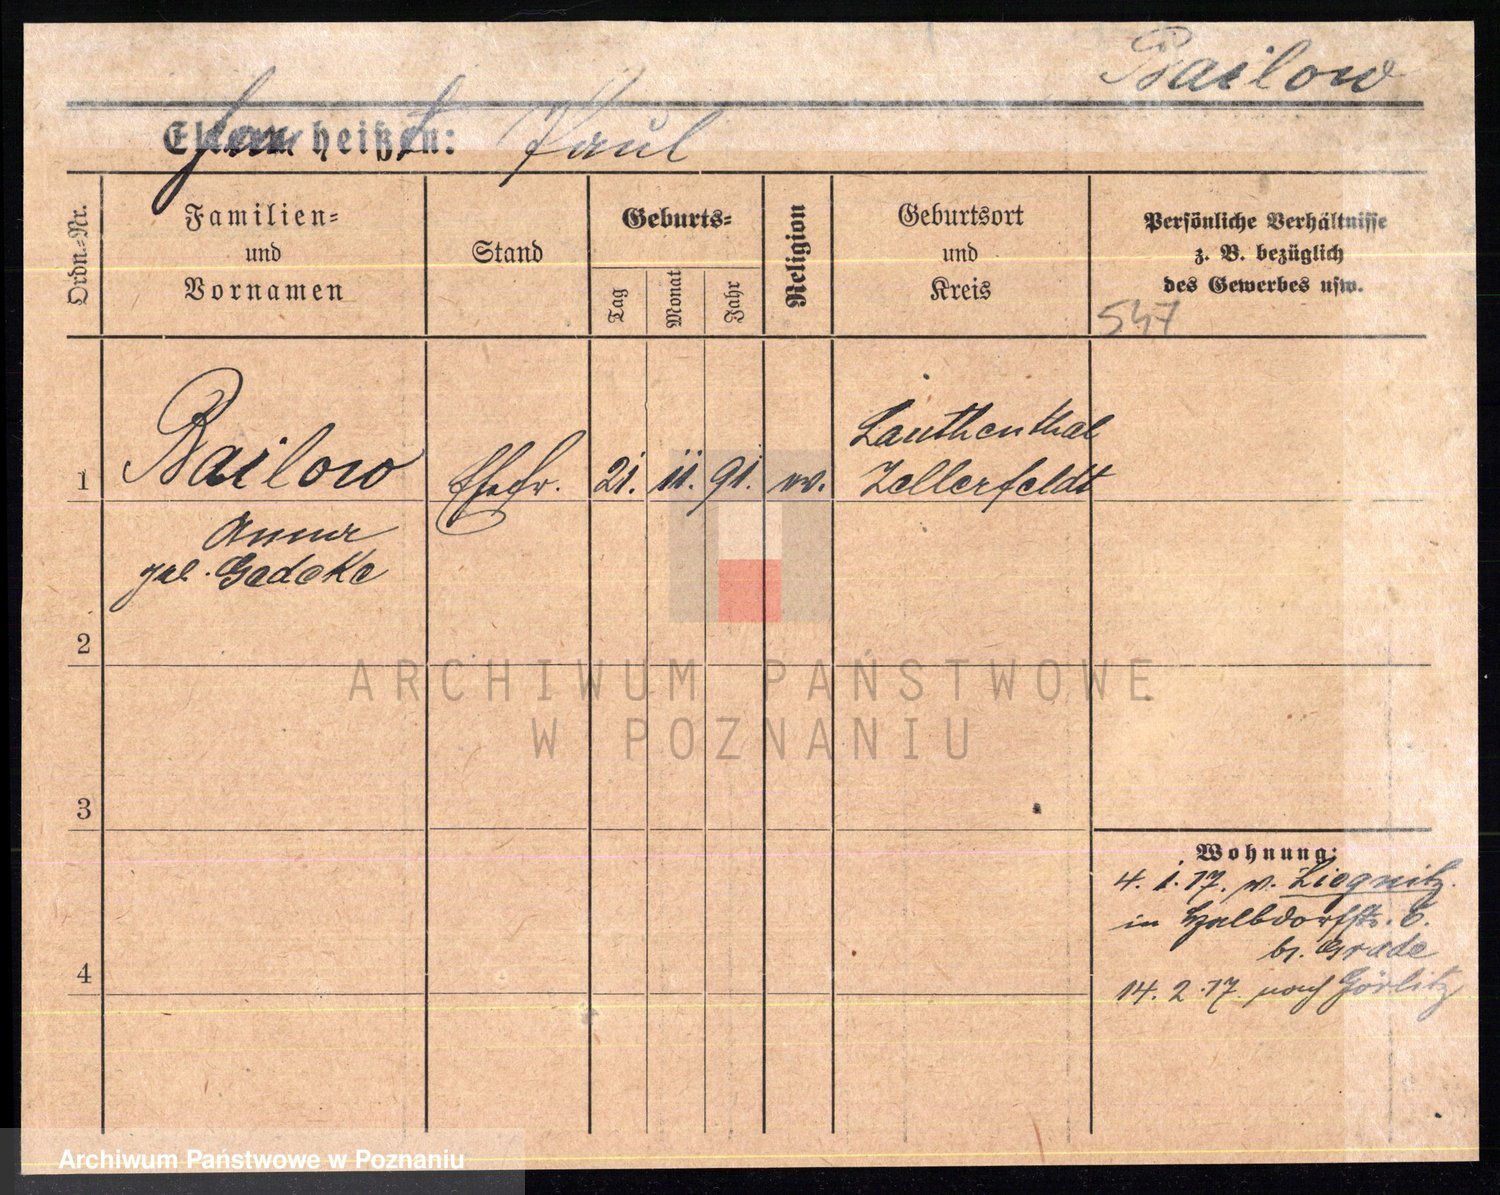 Bailow
Eltern heißen: Paul
Ordn.=Nr.
Familien=
und
Vornamen
Stand
Geburts=
Tag
Monat
Jahr
Religion
Geburtsort
und
Kreis
Persönliche Verhältnisse
z. B. bezüglich
des Gewerbes usw.
547
1
Bailow
Ehefr.
21. 11. 91.
Lauthenthal
Zellerfeldt
Anna
geb. Gedeke
2
ARCHIWUM PAŃSTWOWE
W POZNANIU
3
Wohnung:
4. 1. 17. v. Liegnitz.
in Halbdorfstr. 6.
b. Grade
4
14. 2. 17. nach Görlitz
Archiwum Państwowe w Poznaniu